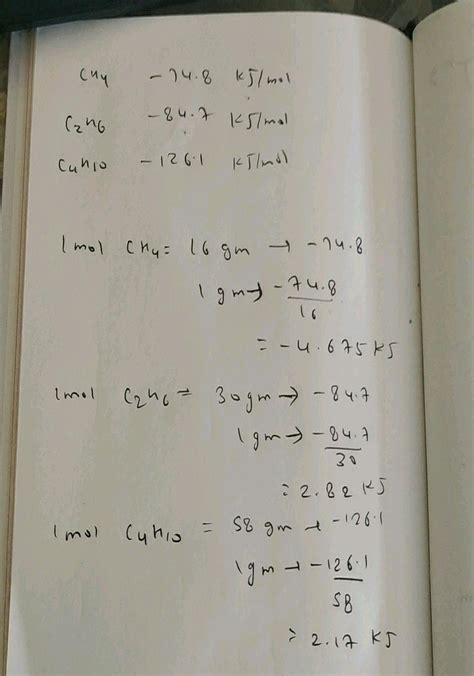 CH4 -74.8 KJ/mol
C2H6 -84.7 KJ/mol
C4H10 -126.1 KJ/mol
1mol CH4 = 16 gm → -74.8
1gm → -74.8/16
= -4.675 KJ
1mol C2H6 = 30gm → -84.7
1gm → -84.7/30
= 2.82 KJ
1mol C4H10 = 58 gm → -126.1
1gm → -126.1/58
= 2.17 KJ